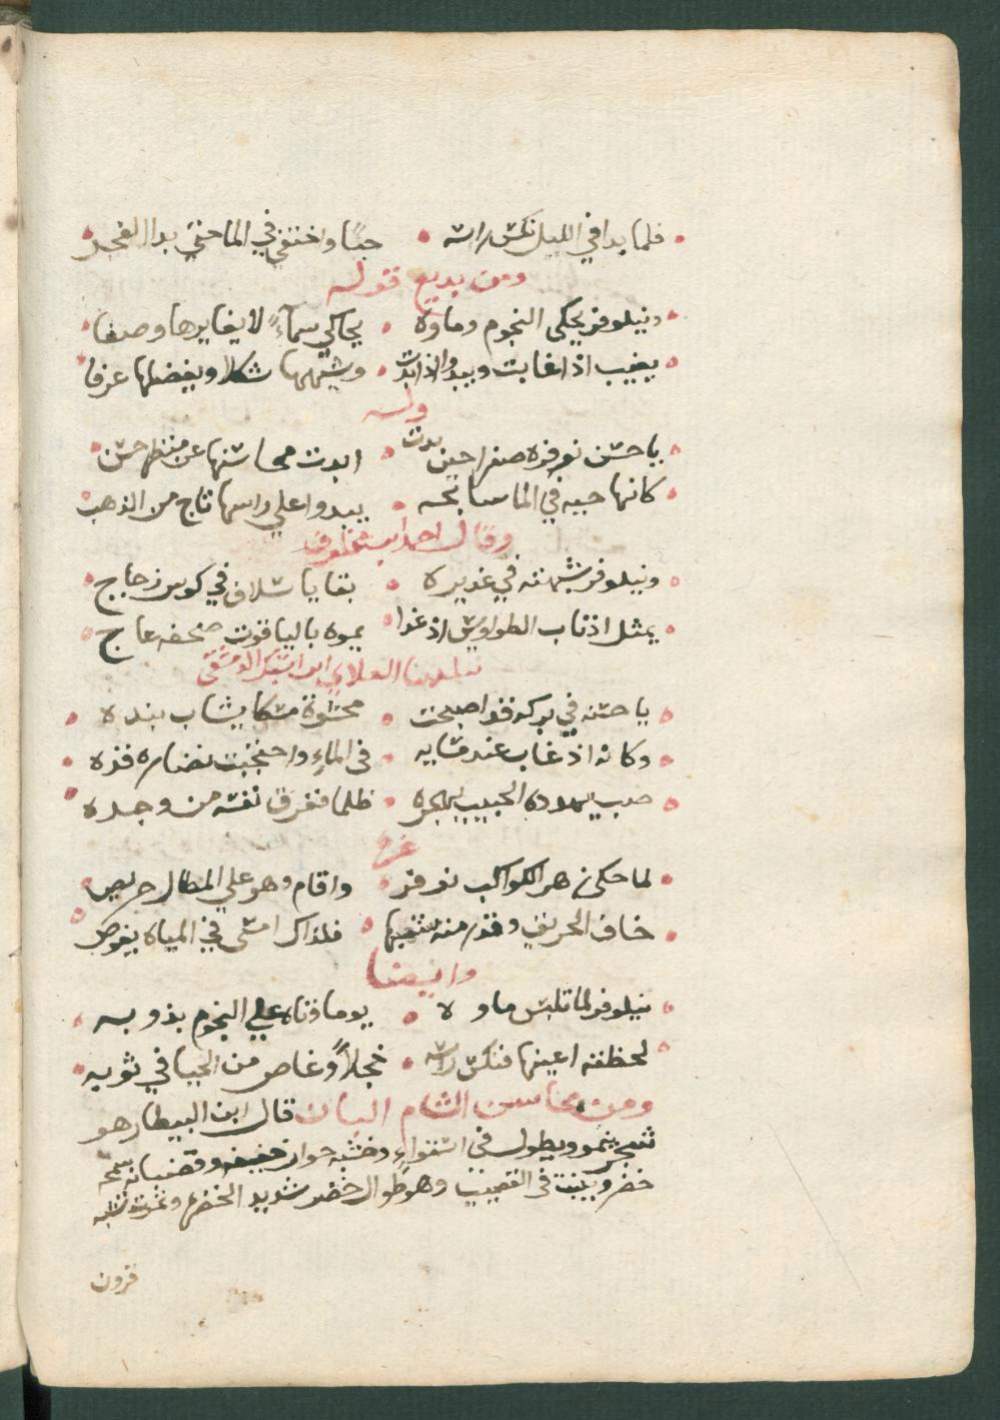 فلما بدا في الليل نكس راسه • حيًا واختفي في الما حتي بدا الفجر
ومن بديع قوله
ونيلوفر يحكى النجوم وماوه • يحاكي سمآءً لا يغايرها وصفا
يغيب اذا غابت ويبدوا اذا بدت • ويشبهها شكلا ويفضلها عرفا
وله
يا حسن نوفرة صفرا حين بدت • ابدت محاسنها عن منظر حسن
كانها حيه في الما سابحه • يبدوا علي راسها تاج من الذهب
وقال احمد ابن مخلوف
ونيلوفر شبهته في غديره • بقايا سلاف في كوس زجاج
يمثل اذناب الطواويس اذ غدا • يموه بالياقوت صحفه عاج
الدمشقي
يا حسنه في بركه قد اصبحت • محشوة مسكا يشاب بنده
وكانه اذ غاب عند مسايه • في الماء واحتجبت نضارة قده
صب يهدده الحبيب بهجره • ظلما فغرق نفسه من وجده
غيره
لما حكى زهر الكواكب نوفر • واقام وهو علي المطال حريص
خاف الحريق وقد رمته بشهبها • فلذاك امسى في المياه يغوص
وايضا
نيلوفر لما تلبس ماوه • يوما وتاه علي النجوم بذوبه
لحظته اعينها فنكس راسه • خجلاً وغاص من الحيا في ثوبه
ومن محاسن الشام البان قال ابن البيطار هو
شجر ينمو ويطول في استواء وخشبه خوار خفيف وقضبانه سمجه
خضر وينبت في القضيب وهو طوال خضر شديد الخضرة وثمرته تشبه
قرون